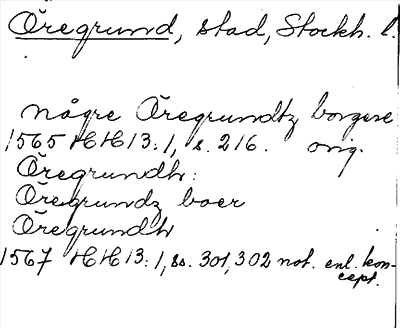 Öregrund, stad, Stockh. l.
någre Öregrundtz borgere
1565 HH 13:1, s. 216. orig.
Öregrundh:
Öregrundz boer
Öregrundh
1567 HH 13:1, ss. 301, 302 not. enl. kon-
cept.